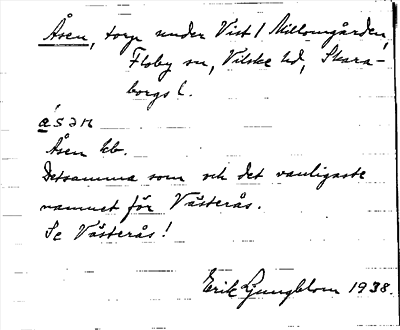 Åsen, torp under Vist 1 Millomgården,
Floby sn, Vilske hd, Skara-
borgs l.
åsən
Åsen kb.
Detsamma som och det vanligaste
namnet för Västerås.
Se Västerås!
Erik Ljungblom 1938.